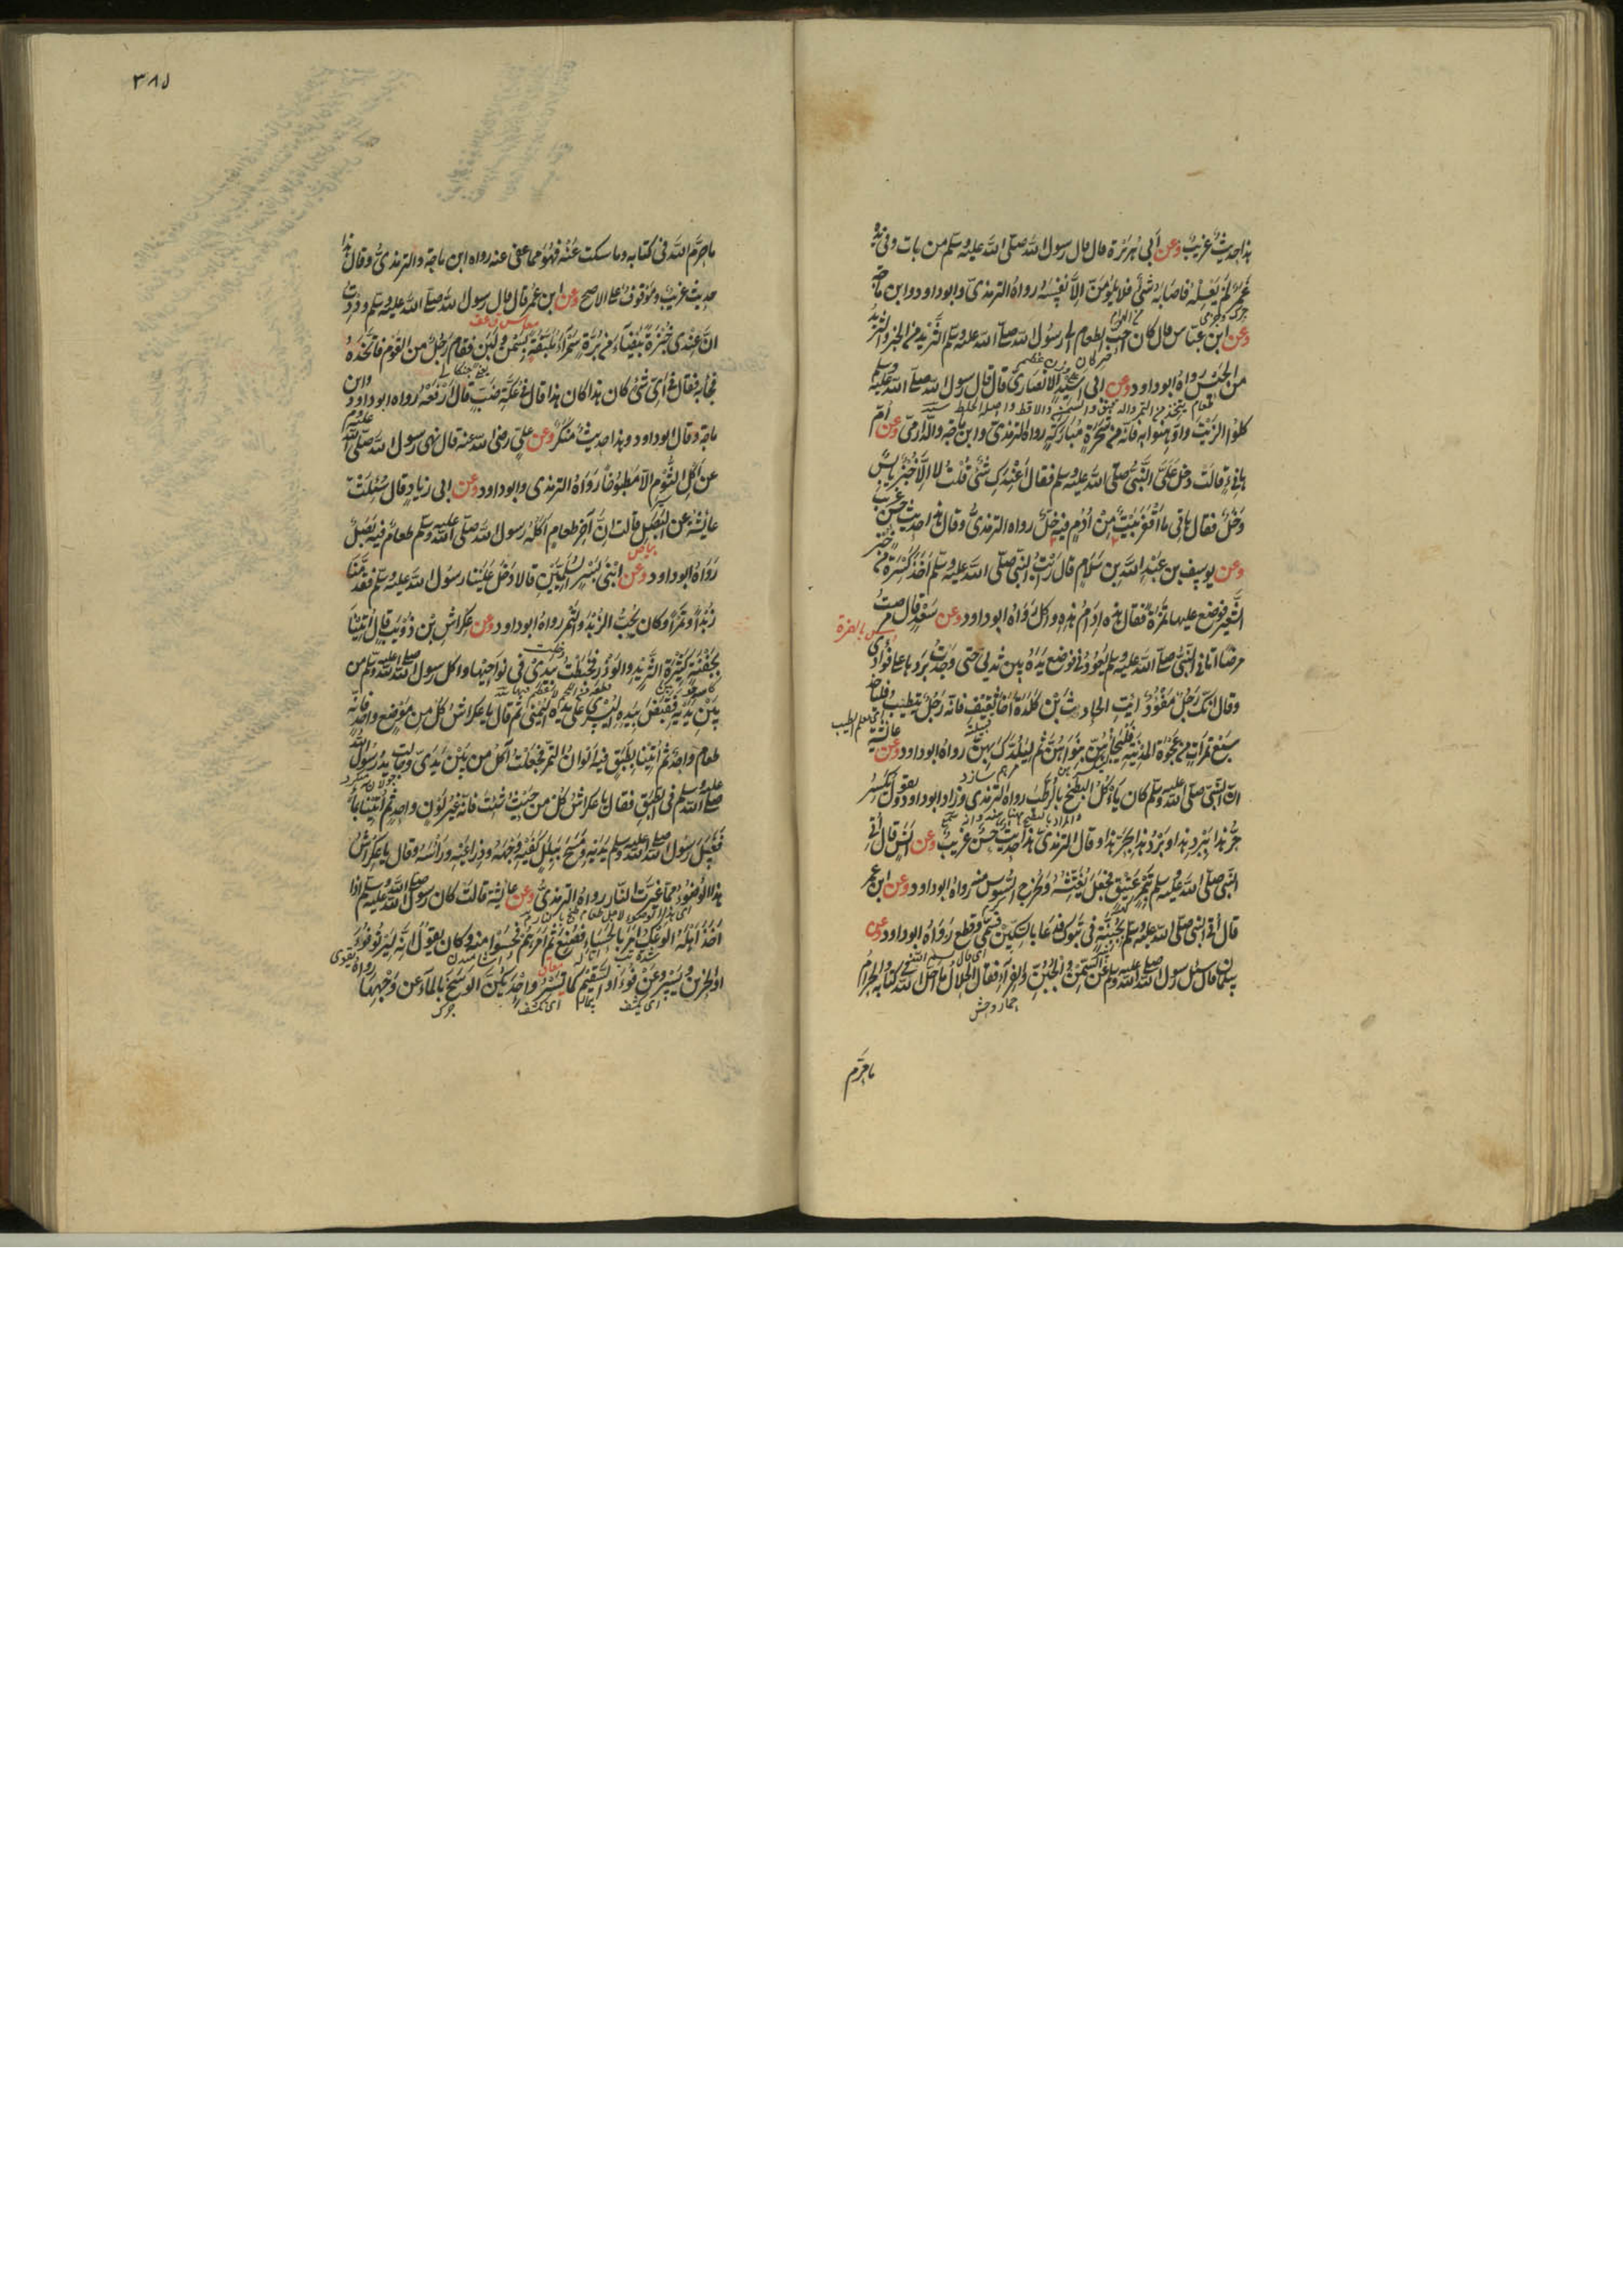 هذا حديث غريب وعن أبي هريرة قال قال رسول الله صلى الله عليه وسلم من بات وفي يده
غمر لم يغسله فاصابه شئ فلا يلومن الا نفسه رواه الترمذي وابو داود وابن ماجة
وعن ابن عباس قال كان احب الطعام الى رسول الله صلى الله عليه وسلم الثريد من الخبز والثريد
من الحيس رواه ابو داود وعن ابى اسيد الانصاري قال قال رسول الله صلى الله عليه وسلم
كلوا الزيت وادهنوا به فانه من شجرة مباركة رواه الترمذي وابن ماجة والدارمي وعن أم
هانئ قالت دخل علي النبي صلى الله عليه وسلم فقال أعندك شئ قلت لا الا خبز يابس
وخل فقال هاتي ما أقفر بيت من أدم فيه خل رواه الترمذي وقال هذا حديث حسن غريب
وعن يوسف بن عبد الله بن سلام قال رأيت النبي صلى الله عليه وسلم أخذ كسرة من خبز
الشعير فوضع عليها تمرة فقال هذه إدام هذه واكل رواه ابو داود وعن سعد قال مرضت
مرضا اتاني النبي صلى الله عليه وسلم يعودني فوضع يده بين ثديي حتى وجدت بردها على فؤادي
وقال انك رجل مفؤد ايت الحارث بن كلدة أخا ثقيف فانه رجل يتطبب فلياخذ
سبع تمرات من عجوة المدينة فليجأهن بنواهن ثم ليلدك بهن رواه ابو داود وعن عائشة
ان النبي صلى الله عليه وسلم كان ياكل البطيخ بالرطب رواه الترمذي وزاد ابو داود ويقول يكسر
حر هذا ببرد هذا وبرد هذا بحر هذا وقال الترمذي هذا حديث حسن غريب وعن انس قال أتي
النبي صلى الله عليه وسلم بتمر عتيق فجعل يفتشه ويخرج السوس منه رواه ابو داود وعن ابن عمر
قال أتي النبي صلى الله عليه وسلم بجبنة في تبوك فدعا بالسكين فسمى وقطع رواه ابو داود وعن
سلمان قال سئل رسول الله صلى الله عليه وسلم عن السمن والجبن والفراء فقال الحلال ما أحل الله في كتابه والحرام
حمار وحش
ما حرم
٣٨٥
ما حرم الله في كتابه وما سكت عنه فهو مما عفى عنه رواه ابن ماجة والترمذي وقال هذا
حديث غريب وموقوف على الاصح وعن ابن عمر قال قال رسول الله صلى الله عليه وسلم وددت
ان عندي خبزة بيضاء من برة سمراء ملبقة بسمن ولبن فقام رجل من القوم فاتخذه
فجاء به فقال في أي شئ كان هذا كان هذا قال في عكة ضب قال ارفعه رواه ابو داود وابن
ماجة وقال ابو داود وهذا حديث منكر وعن علي رضى الله عنه قال نهى رسول الله صلى الله عليه وسلم
عن أكل الثوم الا مطبوخا رواه الترمذي وابو داود وعن ابى زياد قال سئلت
عائشة عن البصل قالت إن آخر طعام أكله رسول الله صلى الله عليه وسلم طعام فيه بصل
رواه ابو داود وعن ابني بسر السلميين قالا دخل علينا رسول الله صلى الله عليه وسلم فقدمنا
زبدا وتمرا وكان يحب الزبد والتمر رواه ابو داود وعن عكراش بن ذؤيب قال أتينا
بجفنة كثيرة الثريد والوذر فخبطت بيدي في نواحيها واكل رسول الله صلى الله عليه وسلم من
بين يديه فقبض بيده اليسرى على يدي اليمنى ثم قال يا عكراش كل من موضع واحد فانه
طعام واحد ثم أتينا بطبق فيه ألوان التمر فجعلت آكل من بين يدي وجالت يد رسول الله
صلى الله عليه وسلم في الطبق فقال يا عكراش كل من حيث شئت فانه غير لون واحد ثم أتينا بماء
فغسل رسول الله صلى الله عليه وسلم يديه ومسح ببلل كفيه وجهه وذراعيه ورأسه وقال يا عكراش
هذا الوضوء مما غيرت النار رواه الترمذي وعن عائشة قالت كان رسول الله صلى الله عليه وسلم اذا
أخذ أهله الوعك امر بالحساء فصنع ثم أمرهم فحسوا منه وكان يقول إنه ليرتو فؤاد
الحزين ويسرو عن فؤاد السقيم كما تسرو إحديكن الوسخ بالماء عن وجهها رواه